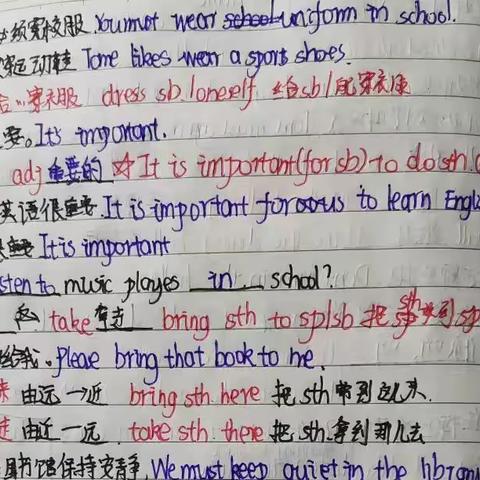 必须穿校服. You must wear school uniform in school.
穿运动鞋 Tome likes wear a sport shoes.
给…穿衣服 dress sb./oneself 给sb/自己穿衣服
要。It's important.
adj 重要的 ☆ It is important (for sb) to do sth.
英语很重要. It is important for us to learn Engl
很重要 It is important
sten to music playes in school?
take 带去 bring sth to sp/sb 把 sth 带到 sp
给我. Please bring that book to me.
来 由远→近 bring sth. here 把 sth 带到这儿来.
走 由近→远 take sth. there 把 sth. 拿到那儿去
图书馆保持安静. We must keep quiet in the library